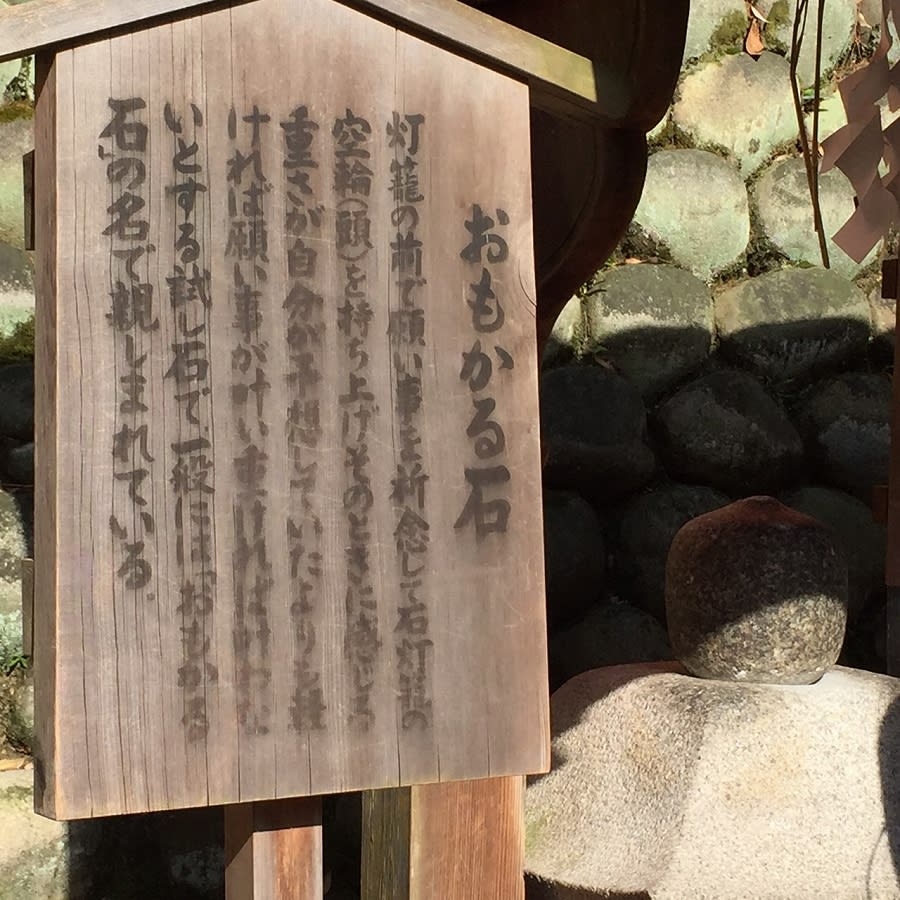 おもかる石
灯籠の前で願い事を祈念して石灯籠の
空輪(頭)を持ち上げそのときに感じる
重さが自分が予想していたよりも軽
ければ願い事が叶い重ければ叶わな
いとする試し石で、一般にはおもかる
石の名で親しまれている。